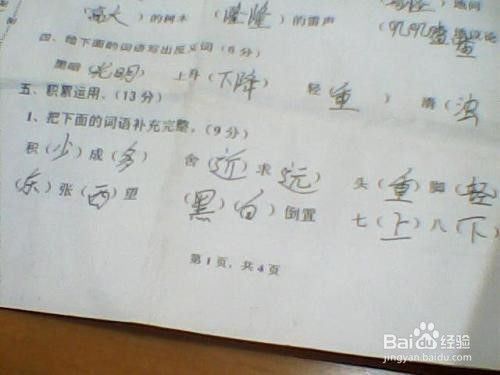 (高大)的树木 (隆隆)的雷声
四、给下面的词语写出反义词(6分)
黑暗(光明) 上升(下降) 轻(重) 清(浊
五、积累运用。(13分)
1、把下面的词语补充完整。(9分)
积(少)成(多) 舍(近)求(远) 头(重)脚(轻
(东)张(西)望 (黑)(白)倒置 七(上)八(下)
第1页,共4页
Baidu经验
jingyan.baidu.com